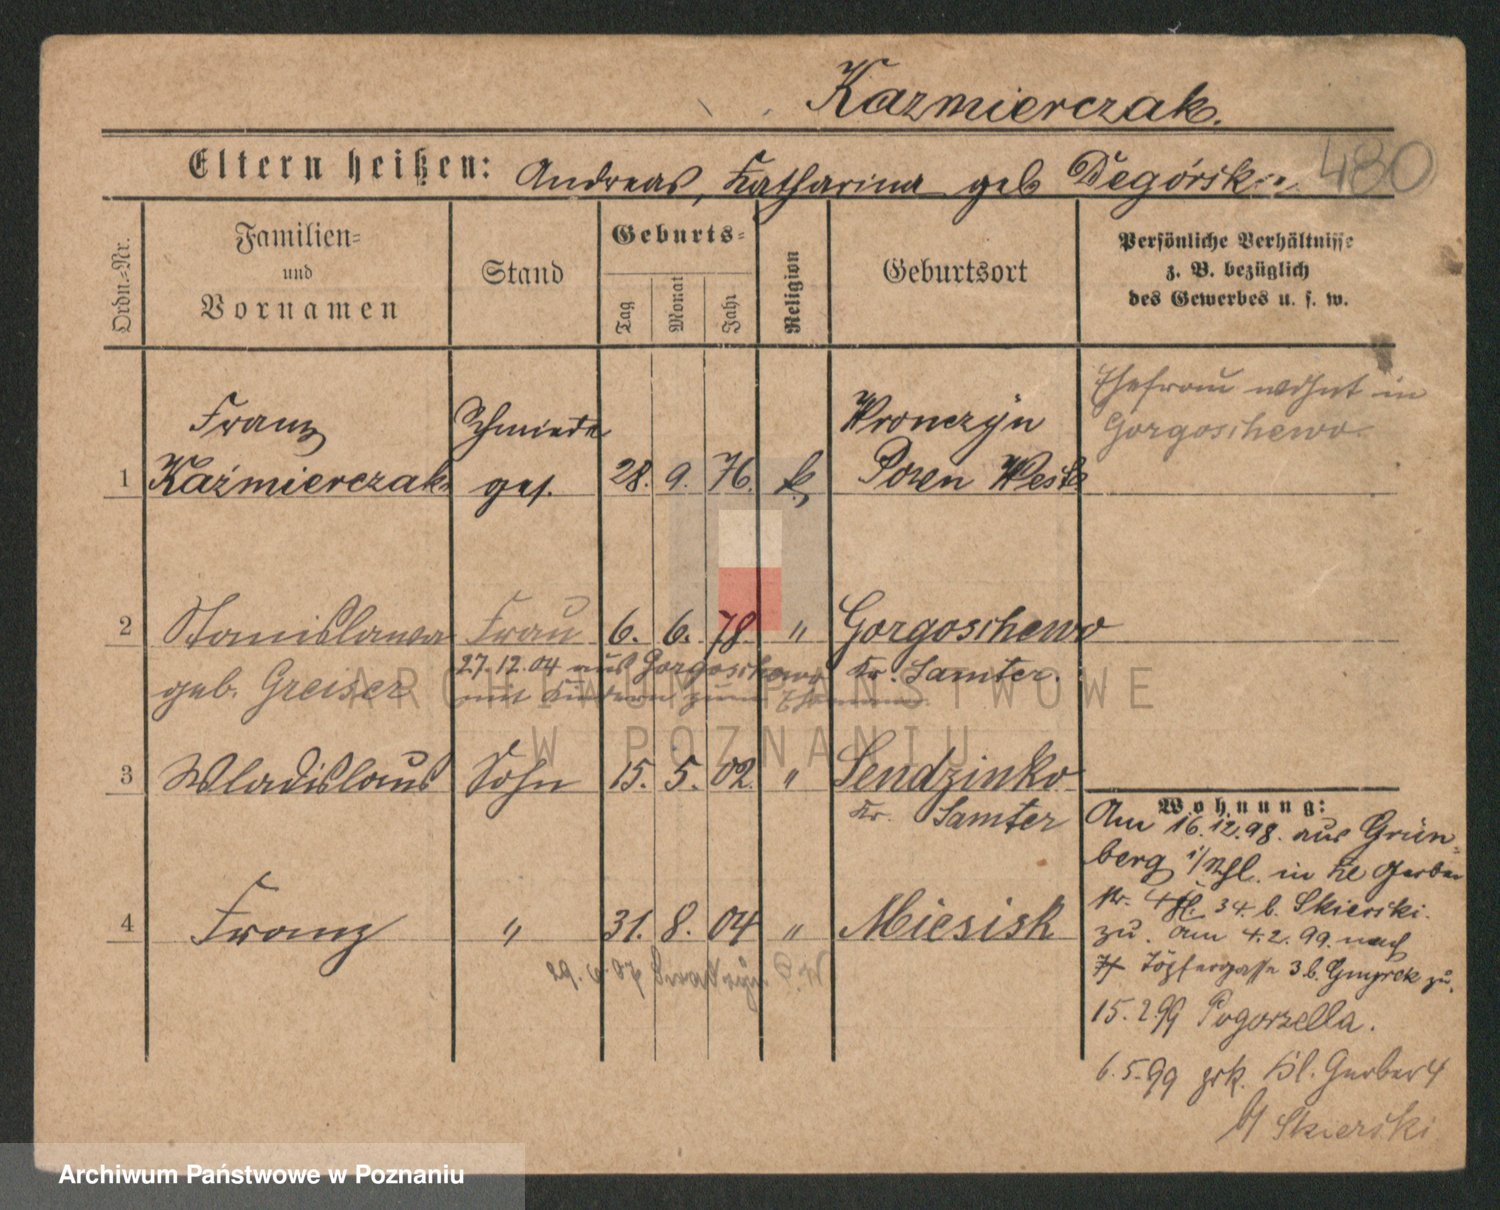 Kazmierczak.
480
Eltern heißen: Andreas, Katharina geb Degórska
Ordn.-Nr.
Familien-
und
Vornamen
Stand
Geburts-
Tag
Monat
Jahr
Religion
Geburtsort
Persönliche Verhältnisse
z. B. bezüglich
des Gewerbes u. s. w.
Franz Schmiede Wronczyn
1 Kaźmierczak ges. 28. 9. 76. k. Posen West
Ehefrau wohnt in
Gorgoschewo
2 Stanislawa Frau 6. 6. 78. " Gorgoschewo
geb. Greiser 27.12.04 aus Gorgoschewo Kr. Samter.
mit Kindern zum Ehemann
3 Wladislaus Sohn 15. 5. 02. " Sendzinko
Kr. Samter
4 Franz " 31. 8. 04 " Miesisk
Wohnung:
Am 16.12.98. aus Grün-
berg i/Schl. in Kl Gerber
Nr. 4 34. b. Skierski.
zu. Am 4.2.99. nach
Töpfergasse 3 b. Gmyrek zu.
15.2.99 Pogorzella.
6.5.99 zrk. Kl. Gerber 4
b/ Skierski
ARCHIWUM PAŃSTWOWE
W POZNANIU
Archiwum Państwowe w Poznaniu